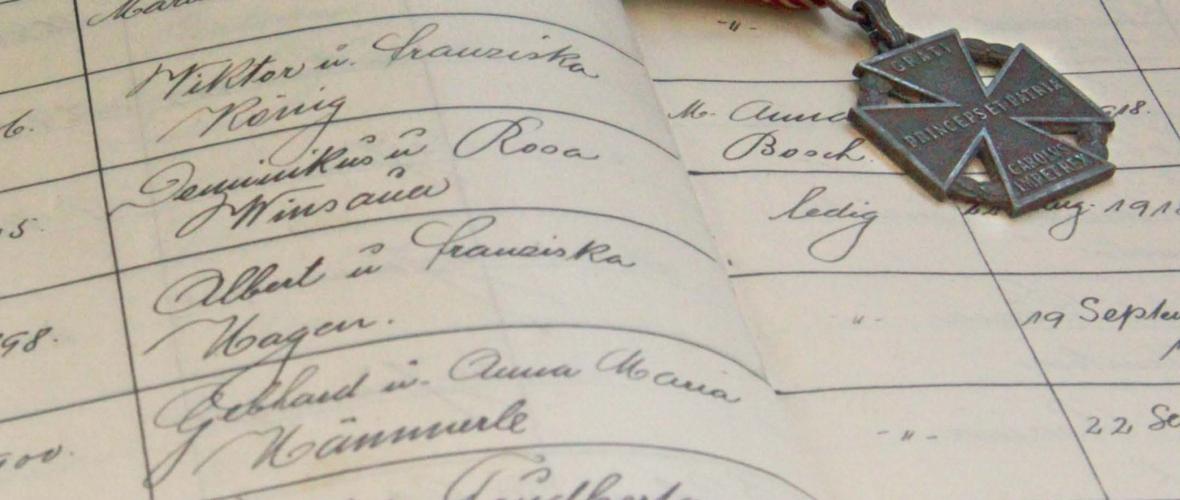 Wiktor u. Franziska
König
Dominikus u Rosa
Winsauer
Albert u Franziska
Hagen.
Gebhard u. Anna Maria
Hämmerle
-"-
M. Anna
Bosch.
ledig
-"-
-"-
6.
5.
98.
900.
918.
ug. 191
19 Septe
22 Se
GRATI
PRINCEPS ET PATRIA
CAROLVS
IMP ET REX